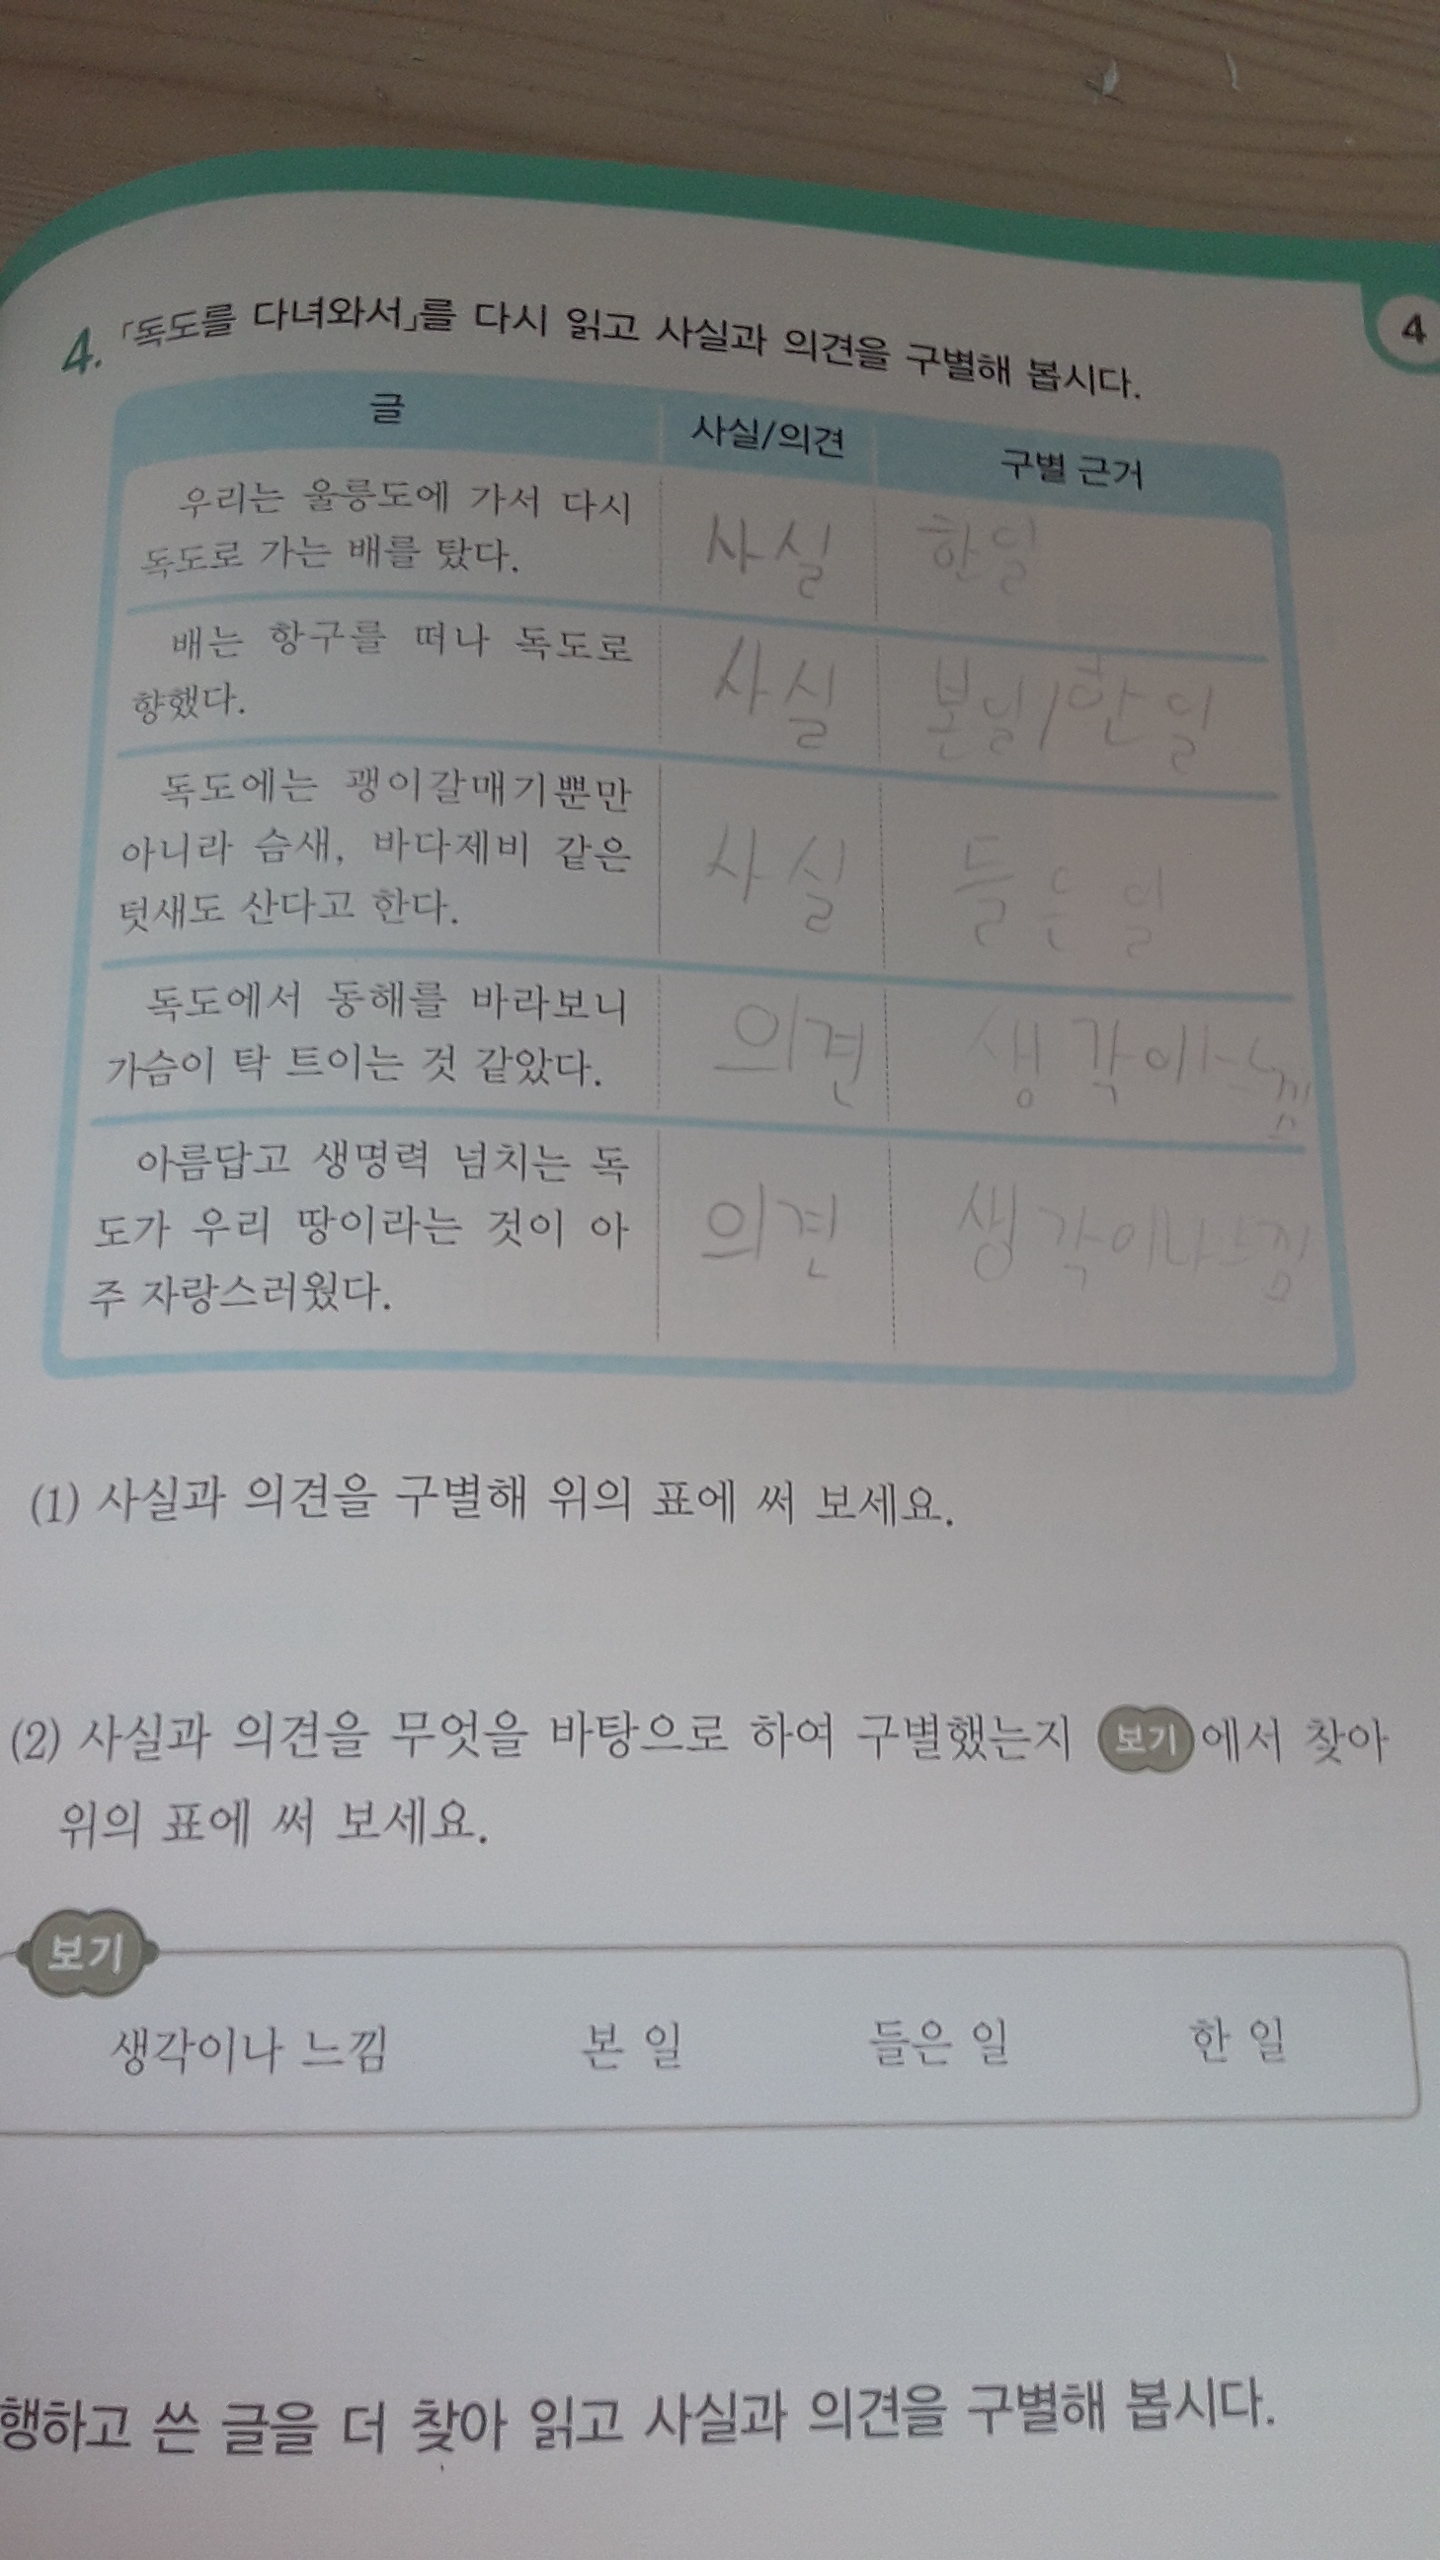 4
4. 「독도를 다녀와서」를 다시 읽고 사실과 의견을 구별해 봅시다.
글 사실/의견 구별 근거
우리는 울릉도에 가서 다시
독도로 가는 배를 탔다.
사실 한일
배는 항구를 떠나 독도로
향했다.
사실 본일/한일
독도에는 괭이갈매기뿐만
아니라 슴새, 바다제비 같은
텃새도 산다고 한다.
사실 들은일
독도에서 동해를 바라보니
가슴이 탁 트이는 것 같았다.
의견
아름답고 생명력 넘치는 독
도가 우리 땅이라는 것이 아
주 자랑스러웠다.
의견 생각이나느낌
(1) 사실과 의견을 구별해 위의 표에 써 보세요.
(2) 사실과 의견을 무엇을 바탕으로 하여 구별했는지 보기 에서 찾아
위의 표에 써 보세요.
보기
생각이나 느낌 본 일 들은 일 한 일
행하고 쓴 글을 더 찾아 읽고 사실과 의견을 구별해 봅시다.